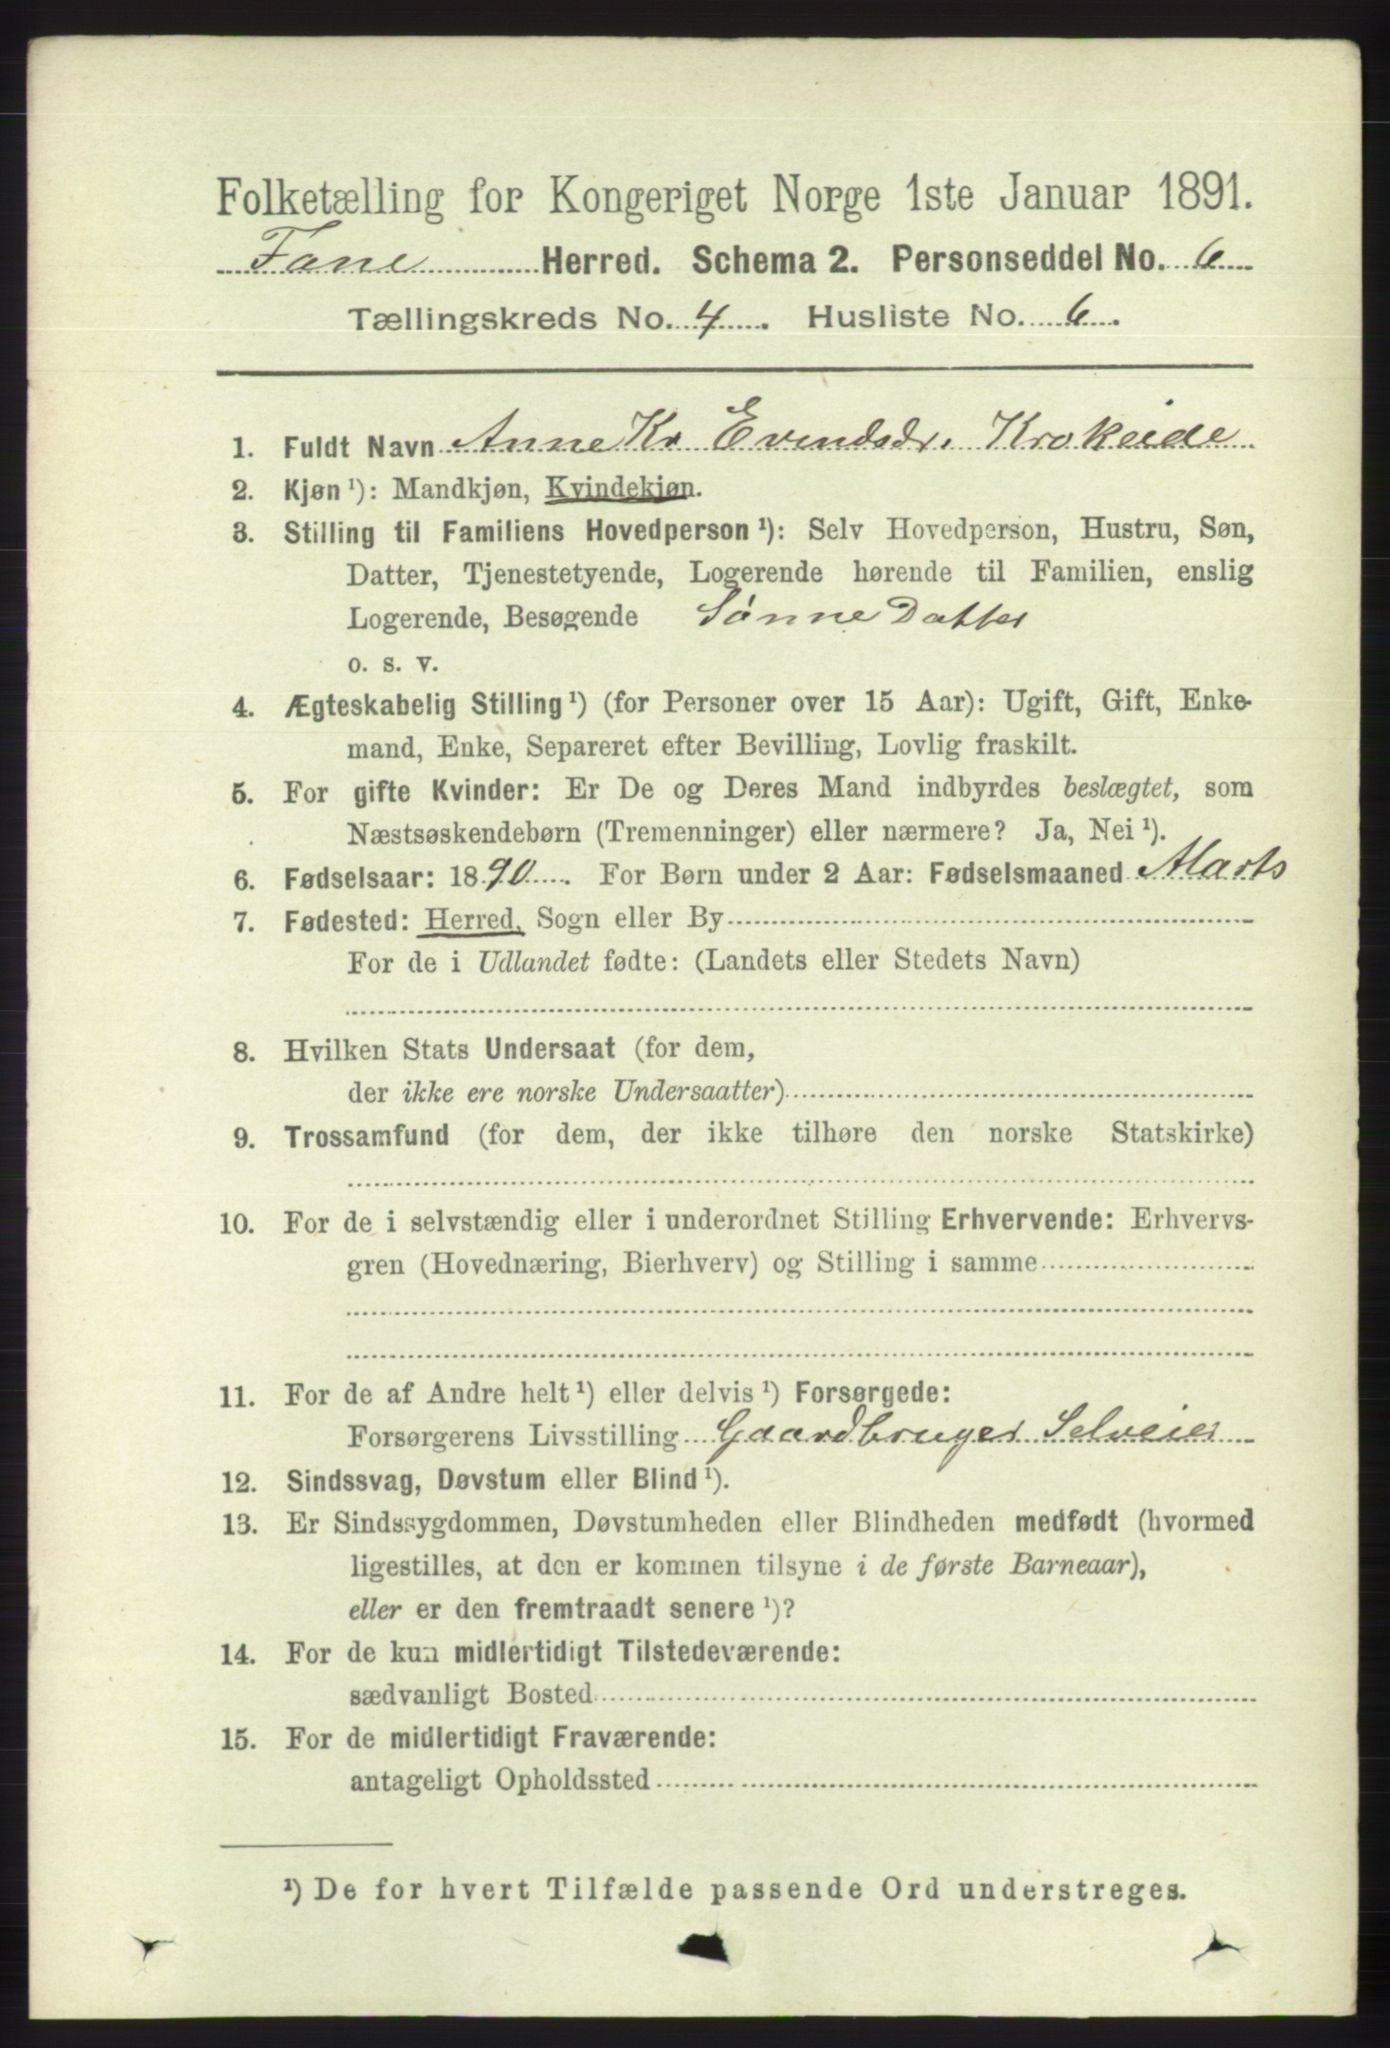 Folketælling for Kongeriget Norge 1ste Januar 1891.
Fane Herred. Schema 2. Personseddel No. 6
Tællingskreds No. 4. Husliste No. 6.
1. Fuldt Navn Anne Kr Evendsdr. Krokeide
2. Kjøn ¹): Mandkjøn, Kvindekjøn.
3. Stilling til Familiens Hovedperson ¹): Selv Hovedperson, Hustru, Søn,
Datter, Tjenestetyende, Logerende hørende til Familien, enslig
Logerende, Besøgende Sønne Datter
o. s. v.
4. Ægteskabelig Stilling ¹) (for Personer over 15 Aar): Ugift, Gift, Enke-
mand, Enke, Separeret efter Bevilling, Lovlig fraskilt.
5. For gifte Kvinder: Er De og Deres Mand indbyrdes beslægtet, som
Næstsøskendebørn (Tremenninger) eller nærmere? Ja, Nei ¹).
6. Fødselsaar: 1890. For Børn under 2 Aar: Fødselsmaaned Marts
7. Fødested: Herred, Sogn eller By
For de i Udlandet fødte: (Landets eller Stedets Navn)
8. Hvilken Stats Undersaat (for dem,
der ikke ere norske Undersaatter)
9. Trossamfund (for dem, der ikke tilhøre den norske Statskirke)
10. For de i selvstændig eller i underordnet Stilling Erhvervende: Erhvervs-
gren (Hovednæring, Bierhverv) og Stilling i samme
11. For de af Andre helt ¹) eller delvis ¹) Forsørgede:
Forsørgerens Livsstilling Gaardbruger Selveier
12. Sindssvag, Døvstum eller Blind ¹).
13. Er Sindssygdommen, Døvstumheden eller Blindheden medfødt (hvormed
ligestilles, at den er kommen tilsyne i de første Barneaar),
eller er den fremtraadt senere ¹)?
14. For de kun midlertidigt Tilstedeværende:
sædvanligt Bosted
15. For de midlertidigt Fraværende:
antageligt Opholdssted
¹) De for hvert Tilfælde passende Ord understreges.